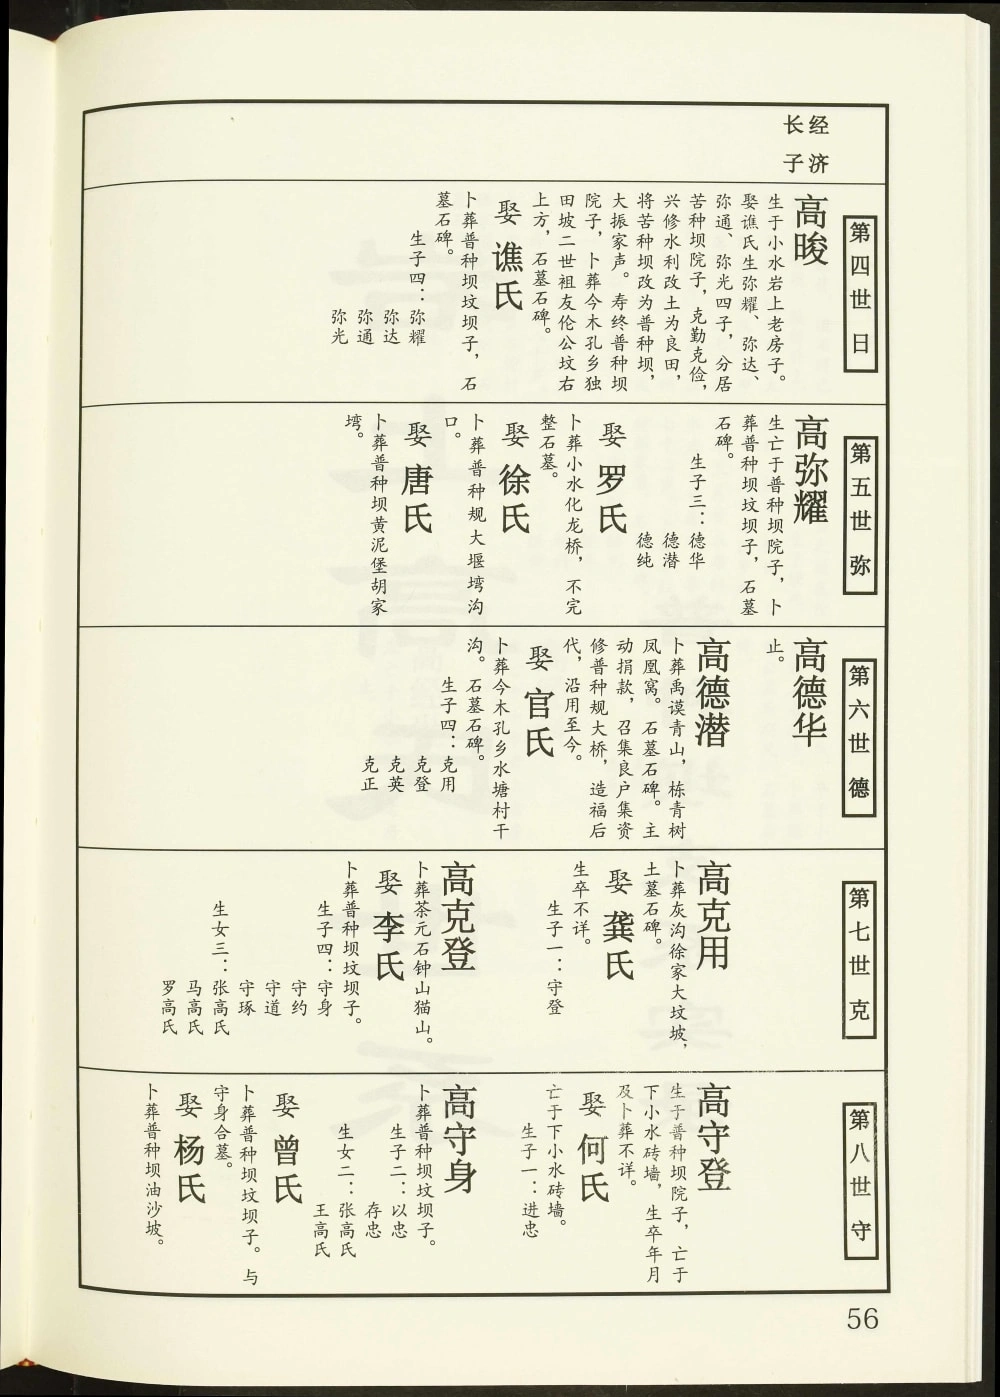 经济
长子
第四世 日
高晙
生于小水岩上老房子。
娶谯氏生弥耀、弥达、
弥通、弥光四子，分居
苦种坝院子，克勤克俭，
兴修水利改土为良田，
将苦种坝改为普种坝，
大振家声。寿终普种坝
院子，卜葬今木孔乡独
田坡二世祖友伦公坟右
上方，石墓石碑。
娶 谯氏
卜葬普种坝坟坝子，石
墓石碑。
生子四：弥耀
弥达
弥通
弥光
第五世 弥
高弥耀
生亡于普种坝院子，卜
葬普种坝坟坝子，石墓
石碑。
生子三：德华
德潜
德纯
娶 罗氏
卜葬小水化龙桥，不完
整石墓。
娶 徐氏
卜葬普种规大堰塆沟
口。
娶 唐氏
卜葬普种坝黄泥堡胡家
塆。
第六世 德
高德华
止。
高德潜
卜葬禹谟青山，栋青树
凤凰窝。石墓石碑。主
动捐款，召集良户集资
修普种规大桥，造福后
代，沿用至今。
娶 官氏
卜葬今木孔乡水塘村干
沟。石墓石碑。
生子四：克用
克登
克英
克正
第七世 克
高克用
卜葬灰沟徐家大坟坡，
土墓石碑。
娶 龚氏
生卒不详。
生子一：守登
高克登
卜葬茶元石钟山猫山。
娶 李氏
卜葬普种坝坟坝子。
生子四：守身
守约
守道
守琢
生女三：张高氏
马高氏
罗高氏
第八世 守
高守登
生于普种坝院子，亡于
下小水砖墙，生卒年月
及卜葬不详。
娶 何氏
亡于下小水砖墙。
生子一：进忠
高守身
卜葬普种坝坟坝子。
生子二：以忠
存忠
生女二：张高氏
王高氏
娶 曾氏
卜葬普种坝坟坝子。与
守身合墓。
娶 杨氏
卜葬普种坝油沙坡。
56